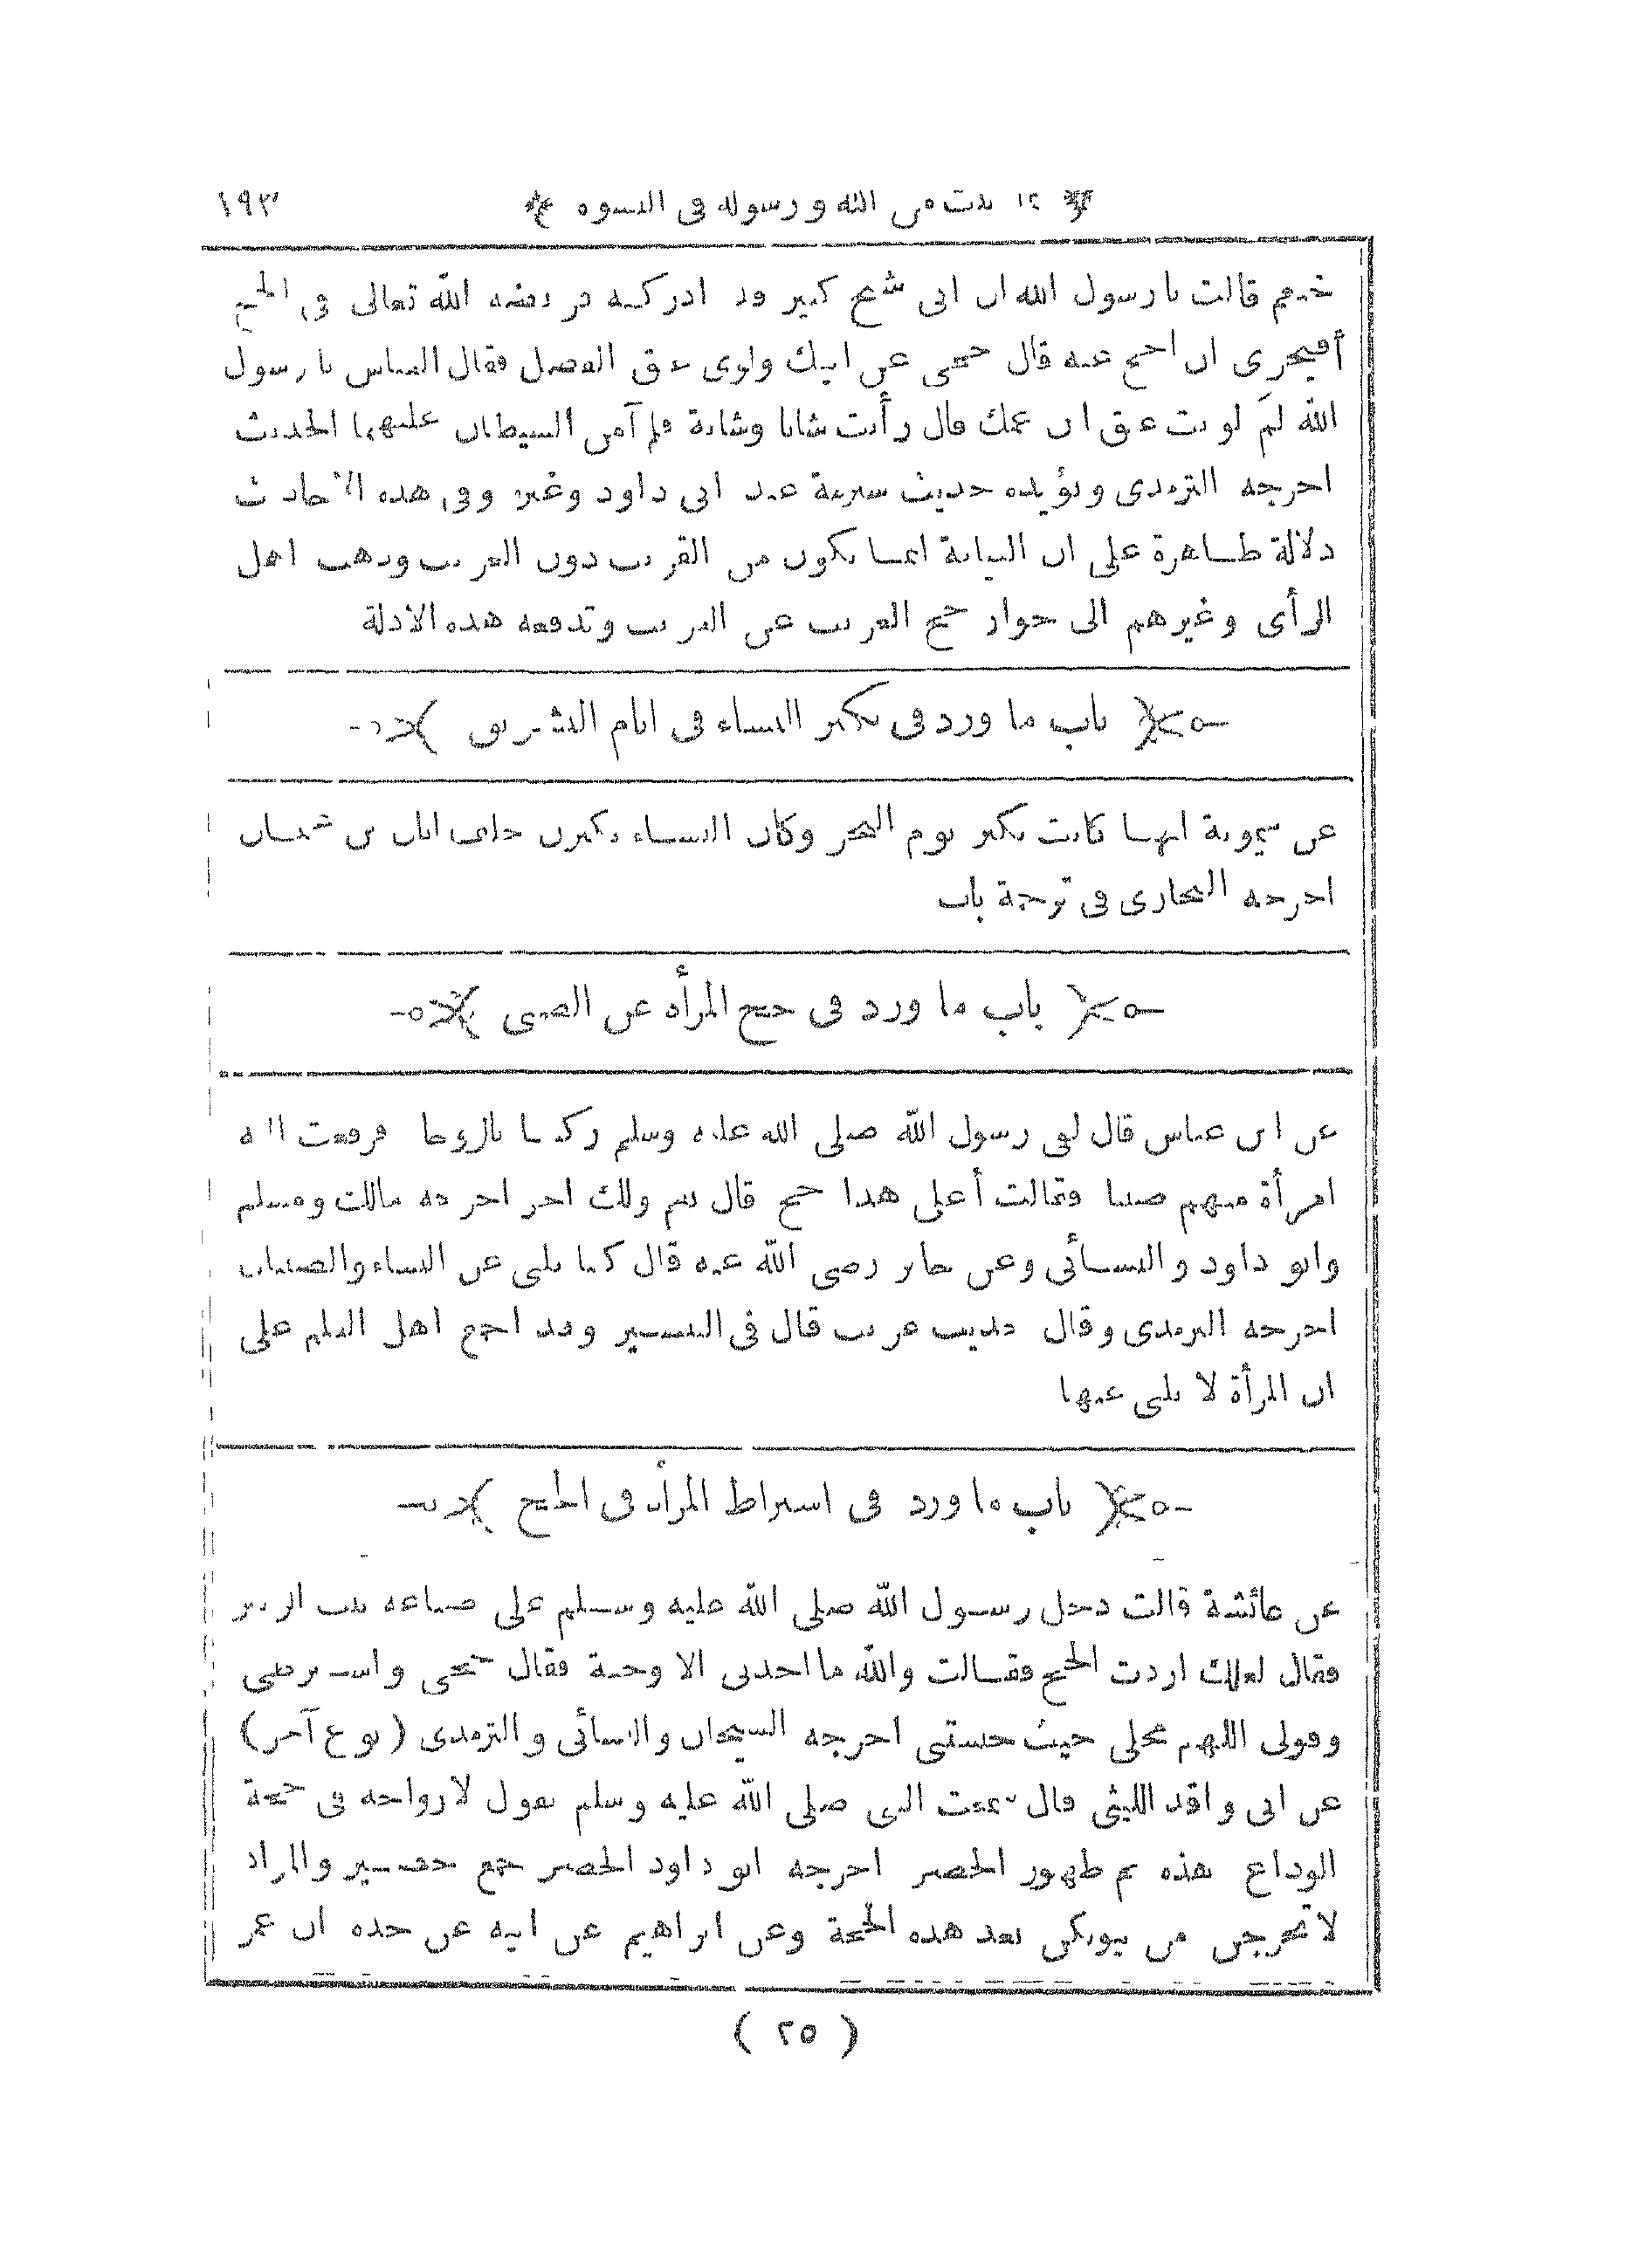 بما ثبت من الله ورسوله في النسوة ١٩٣
خثعم قالت يا رسول الله ان ابى شيخ كبير قد ادركته فريضة الله تعالى فى الحج
أفيجزى ان احج عنه قال حجى عن ابيك ولوى عنق الفضل فقال العباس يا رسول
الله لمَ لويت عنق ابن عمك قال رأيت شابا وشابة فلم آمن الشيطان عليهما الحديث
اخرجه الترمذى ويؤيده حديث شبرمة عند ابى داود وغيره وفى هذه الاحاديث
دلالة ظاهرة على ان النيابة انما يكون من القريب دون الغريب وذهب اهل
الرأى وغيرهم الى جواز حج الغريب عن الغريب وتدفعه هذه الادلة
باب ما ورد فى تكبير النساء فى ايام التشريق
عن ميمونة انها كانت تكبر يوم النحر وكان النساء يكبرن خلف ابان بن عثمان
اخرجه البخارى فى ترجمة باب
باب ما ورد فى حج المرأة عن الصبى
عن ابن عباس قال لقى رسول الله صلى الله عليه وسلم ركبا بالروحا فرفعت اليه
امرأة منهم صبيا فقالت أعلى هذا حج قال نعم ولك اجر اخرجه مالك ومسلم
وابو داود والنسائى وعن جابر رضى الله عنه قال كنا نلبى عن النساء والصبيان
اخرجه الترمذى وقال حديث غريب قال فى التيسير وقد اجمع اهل العلم على
ان المرأة لا يلبى عنها
باب ما ورد فى اشتراط المرأة فى الحج
عن عائشة قالت دخل رسول الله صلى الله عليه وسلم على ضباعة بنت الزبير
فقال لعلك اردت الحج فقالت والله ما اجدنى الا وجعة فقال حجى واشترطى
وقولى اللهم محلى حيث حبستنى اخرجه الشيخان والنسائى والترمذى (نوع آخر)
عن ابى واقد الليثى قال سمعت النبى صلى الله عليه وسلم يقول لازواجه فى حجة
الوداع هذه ثم ظهور الحصر اخرجه ابو داود الحصر جمع حصير والمراد
لا تخرجن من بيوتكن بعد هذه الحجة وعن ابراهيم عن ابيه عن جده ان عمر
( ٢٥ )